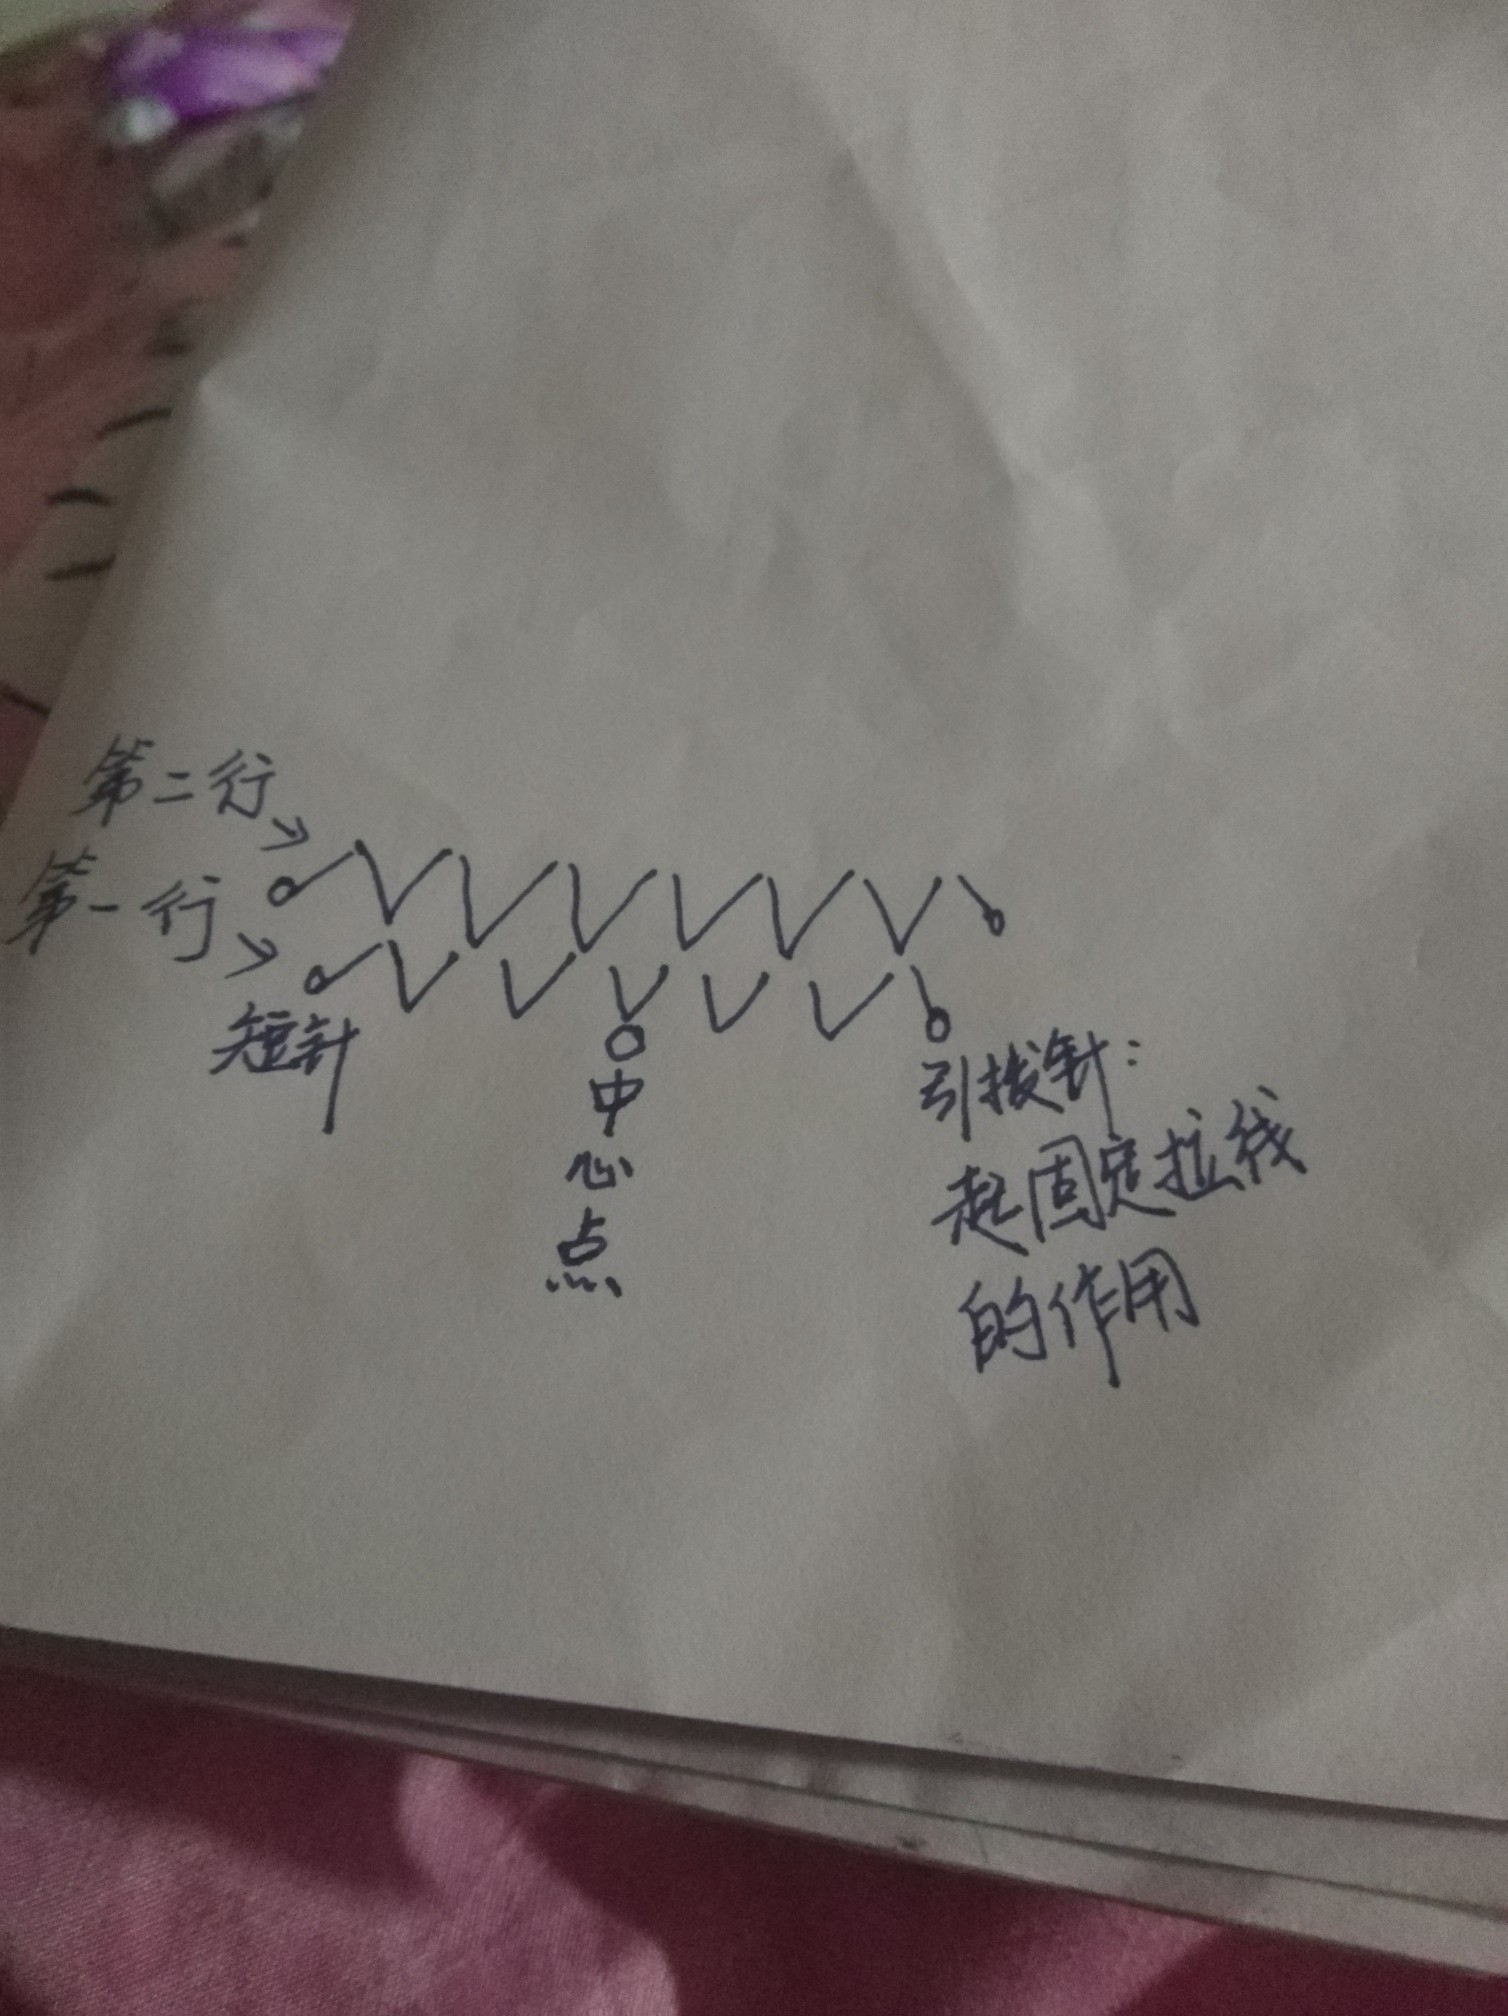 第二行
第一行
短针
中心点
引拔针：
起固定拉线
的作用